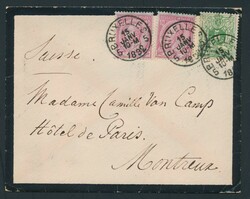 BRUXELLES
BRUXELLES
BRUXELLES
Suisse.
Madame Camille Van Camp
Hôtel de Paris.
Montreux